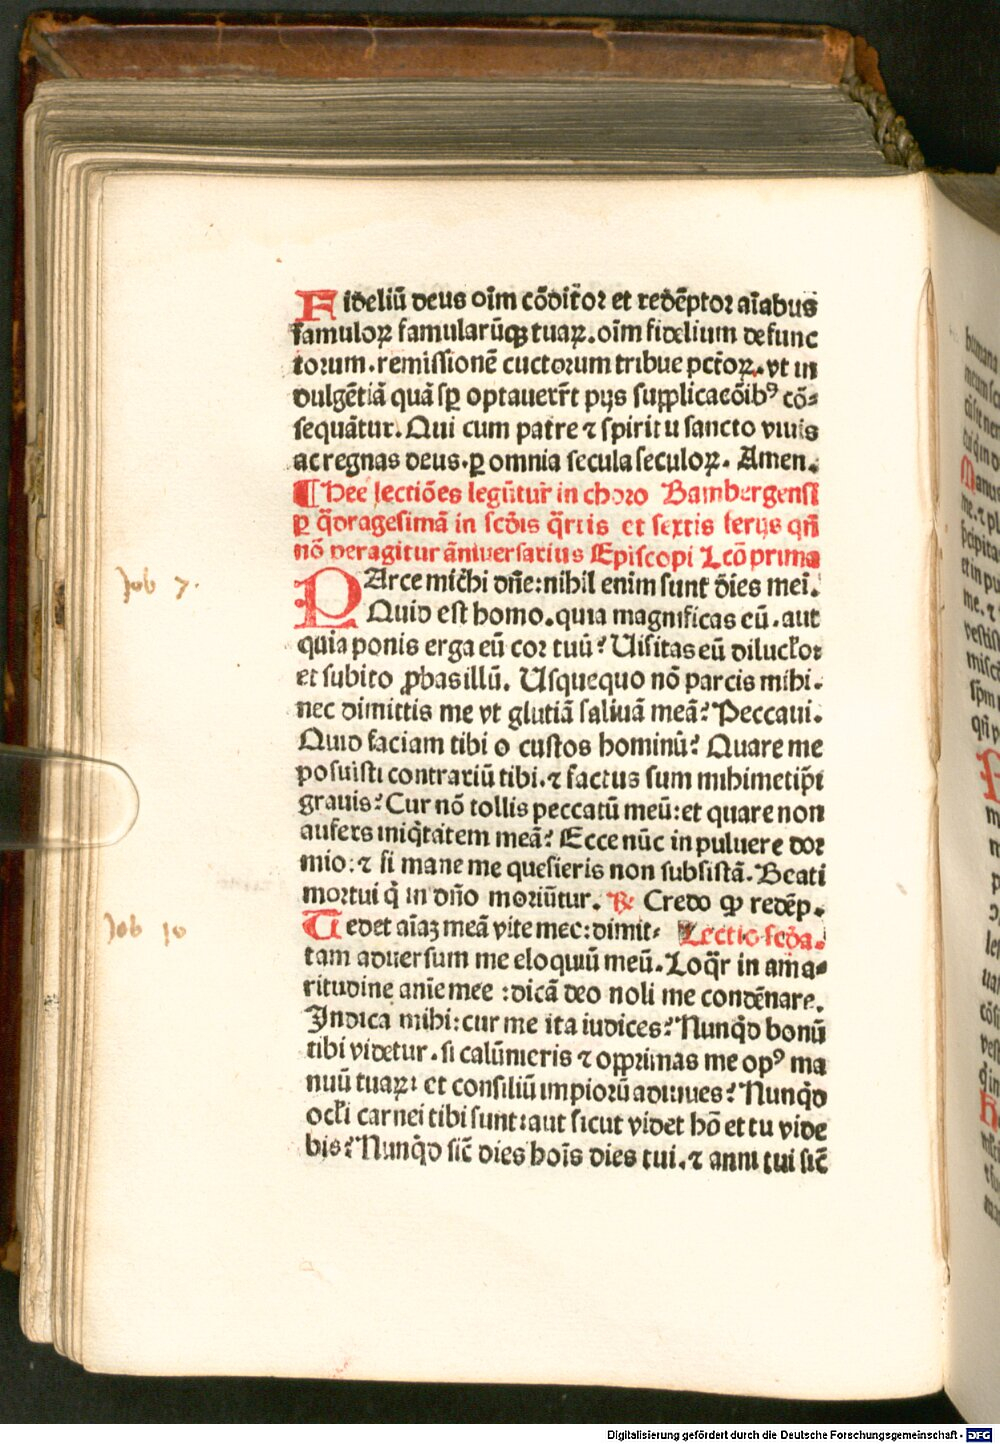 Fideliū deus oīm cōditor et redēptor aīabus
famuloꝝ famularūqꝫ tuaꝝ. oīm fidelium defunc
torum. remissionē cuctorum tribue pctōꝝ. vt in
dulgētiā quā sꝑ optauerr̄t pijs supplicacōibꝰ cō-
sequātur. Qui cum patre ⁊ spiritu sancto viuis
ac regnas deus. ꝑ omnia secula seculoꝝ. Amen.
¶ Hee lectiōes legūtur in choro Bambergensi
ꝑ q̈dragesimā in scd̄is q̈rtis et sextis ferijs qn̄
nō peragitur āniuersarius Episcopi Lcō prima
PArce michi dn̄e: nihil enim sunt dies mei.
Quid est homo. quia magnificas eū. aut
quia ponis erga eū cor tuū? Uisitas eū diluckor
et subito ꝓbas illū. Usquequo nō parcis mihi.
nec dimittis me vt glutiā saliuā meā? Peccaui.
Quid faciam tibi o custos hominū? Quare me
posuisti contrariū tibi. ⁊ factus sum mihimetip̄i
grauis? Cur nō tollis peccatū meū: et quare non
aufers iniq̈tatem meā? Ecce nūc in puluere dor
mio: ⁊ si mane me quesieris non subsistā. Beati
mortui q̇ in dn̄o moriūtur. ℞ Credo ꝙ redēp.
Tedet aīaꝫ meā vite mee: dimit- Lectio scd̄a.
tam aduersum me eloquiū meū. Loq̄r in ama-
ritudine anīe mee : dicā deo noli me condēnare.
Indica mihi: cur me ita iudices? Nunq̈d bonū
tibi videtur. si calūnieris ⁊ opprimas me opꝰ ma
nuū tuaꝝ: et consiliū impiorū adiuues? Nunq̈d
ockī carnei tibi sunt: aut sicut videt hō et tu vide
bis? Nunq̈d sic̄ dies hoīs dies tui. ⁊ anni tui sic̄
Job 7.
Job 10
Digitalisierung gefördert durch die Deutsche Forschungsgemeinschaft - DFG